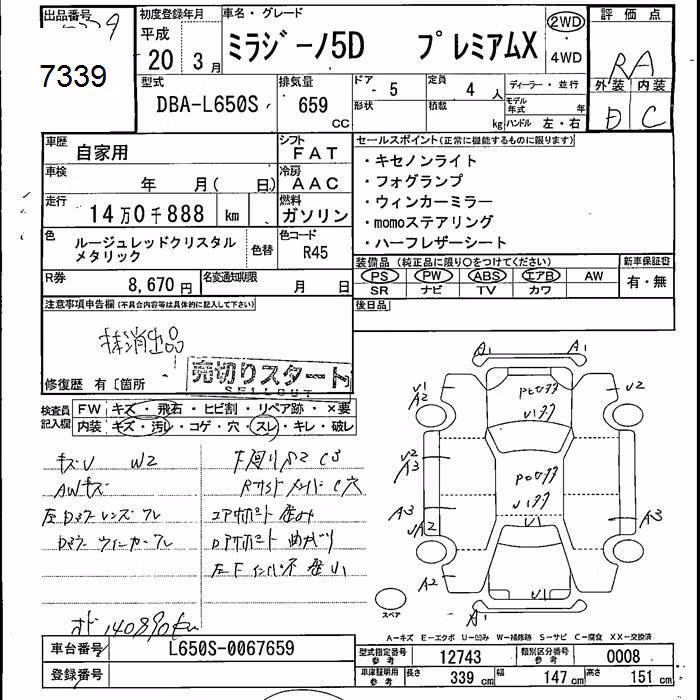 出品番号
7339
初度登録年月
平成
20 3月
車名・グレード
ミラジーノ5D プレミアムX
2WD
・
4WD
評価点
RA
外装 内装
D C
型式
DBA-L650S
排気量
659
CC
ドア
5
定員
4 人
形状
積載
kg
ディーラー・並行
モデル年式 年
ハンドル 左・右
車歴
自家用
シフト
FAT
車検
年 月( 日)
冷房
AAC
走行
14万0千888 km
燃料
ガソリン
色
ルージュレッドクリスタル
メタリック
色替
色コード
R45
R券
8,670 円
名変通知期限
月 日
セールスポイント(正常に機能するものに限ります)
・キセノンライト
・フォグランプ
・ウィンカーミラー
・momoステアリング
・ハーフレザーシート
装備品(純正品に限り○をつけてください)
PS PW ABS エアB AW
SR ナビ TV カワ
新車保証書
有・無
後日品
注意事項申告欄(不具合内容等は具体的に記入して下さい)
抹消出品
売切りスタート
SELLOUT
修復歴 有〔箇所
検査員
記入欄
FW キズ・飛石・ヒビ割・リペア跡・×要
内装 キズ・汚レ・コゲ・穴・スレ・キレ・破レ
キズU W2
AWキズ
下回りS2 C3
A1 A1
U1
A2
U2
U2
A3
A3
UA2
A2
A3
U1
U1
A1
スペア
A-キズ E-エクボ U-凹み W-補修跡 S-サビ C-腐食 XX-交換済
車台番号
L650S-0067659
登録番号
型式指定番号
参考
12743
類別区分番号
参考
0008
車庫証明用
参考
長さ 339 cm 幅 147 cm 高さ 151 cm